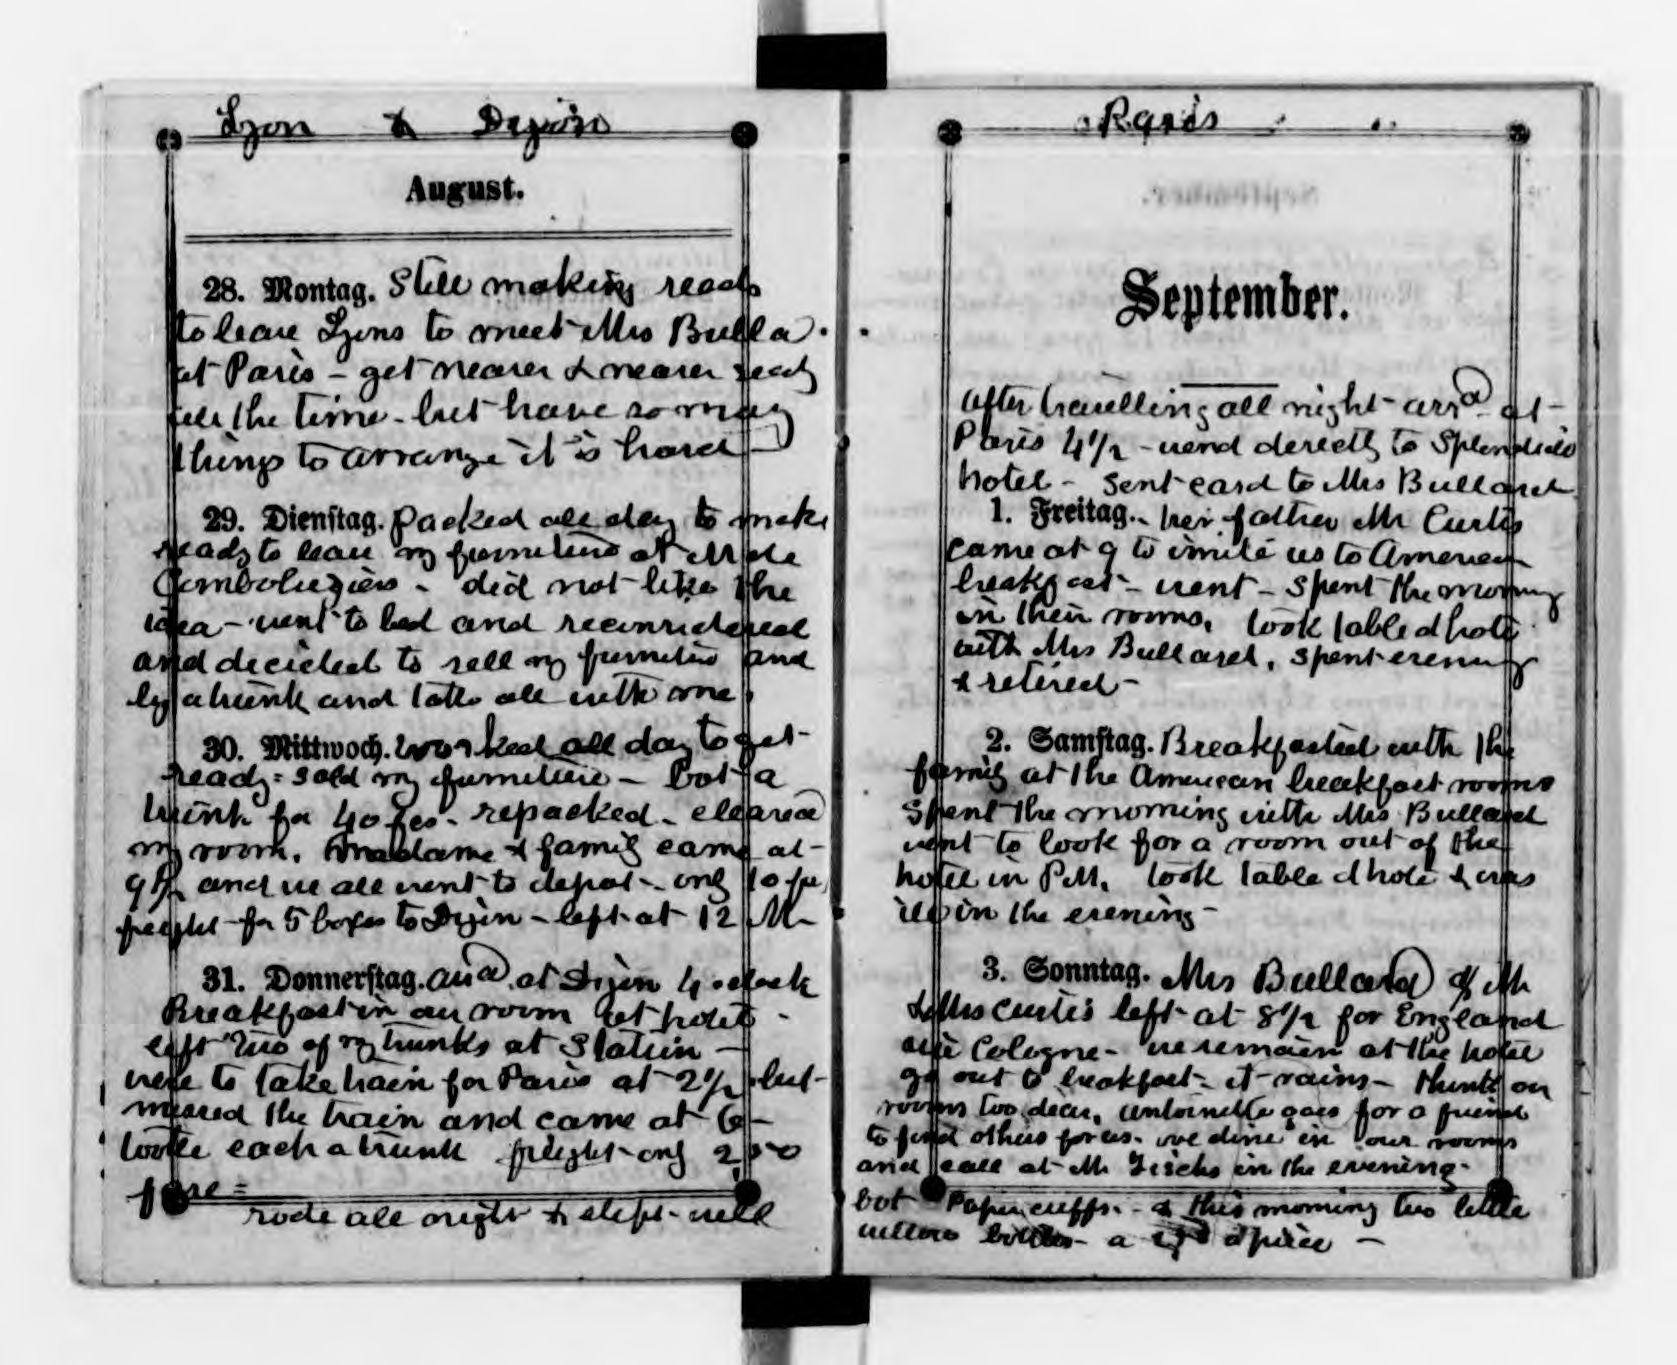 Lyon & Dijon
August.
28. Montag. Still making ready
to leave Lyons to meet Mrs Bulla
at Paris - get nearer & nearer ready
all the time - but have so many
things to arrange it is hard -
29. Dienstag. packed all day to make
ready to leave my furniture at Mde
did not like the
idea - went to bed and reconsidered
and decided to sell my furniture and
by a trunk and take all with me.
30. Mittwoch. worked all day to get
ready = sold my furniture - bot a
trunk for 40 fcs - repacked - cleared
my room. Madame & family came at
9 and we all went to depot - only 10 fr
freight for 5 boxes to Dijon - left at 12 M -
31. Donnerstag. arrd at Dijon 4 oclock
Breakfast in our room at hotel -
left two of my trunks at Station -
were to take train for Paris at 2 1/2 but
missed the train and came at 6 -
took each a trunk freight only 2,50
rode all night & slept well
Paris
September.
after travelling all night - arrd at
Paris 4 1/2 - went directly to Splendide
hotel - sent card to Mrs Bullard
1. Freitag. - her father Mr Curtis
came at 9 to invite us to American
breakfast - went - spent the morning
in their rooms, took table d hote
with Mrs Bullard, spent evening
& retired -
2. Samstag. Breakfasted with the
family at the American breakfast rooms
spent the morning with Mrs Bullard
went to look for a room out of the
hotel in P.M. took table d hote & was
ill in the evening -
3. Sonntag. Mrs Bullard & Mr
& Mrs Curtis left at 8 1/2 for England
via Cologne - we remain at the hotel
go out to breakfast - it rains - think our
rooms too dear, Antoinette goes for a friend
to find others for us. we dine in our rooms
and call at Mr in the evening -
bot Paper cuffs - & this morning two little
willow bottles - a apiece -